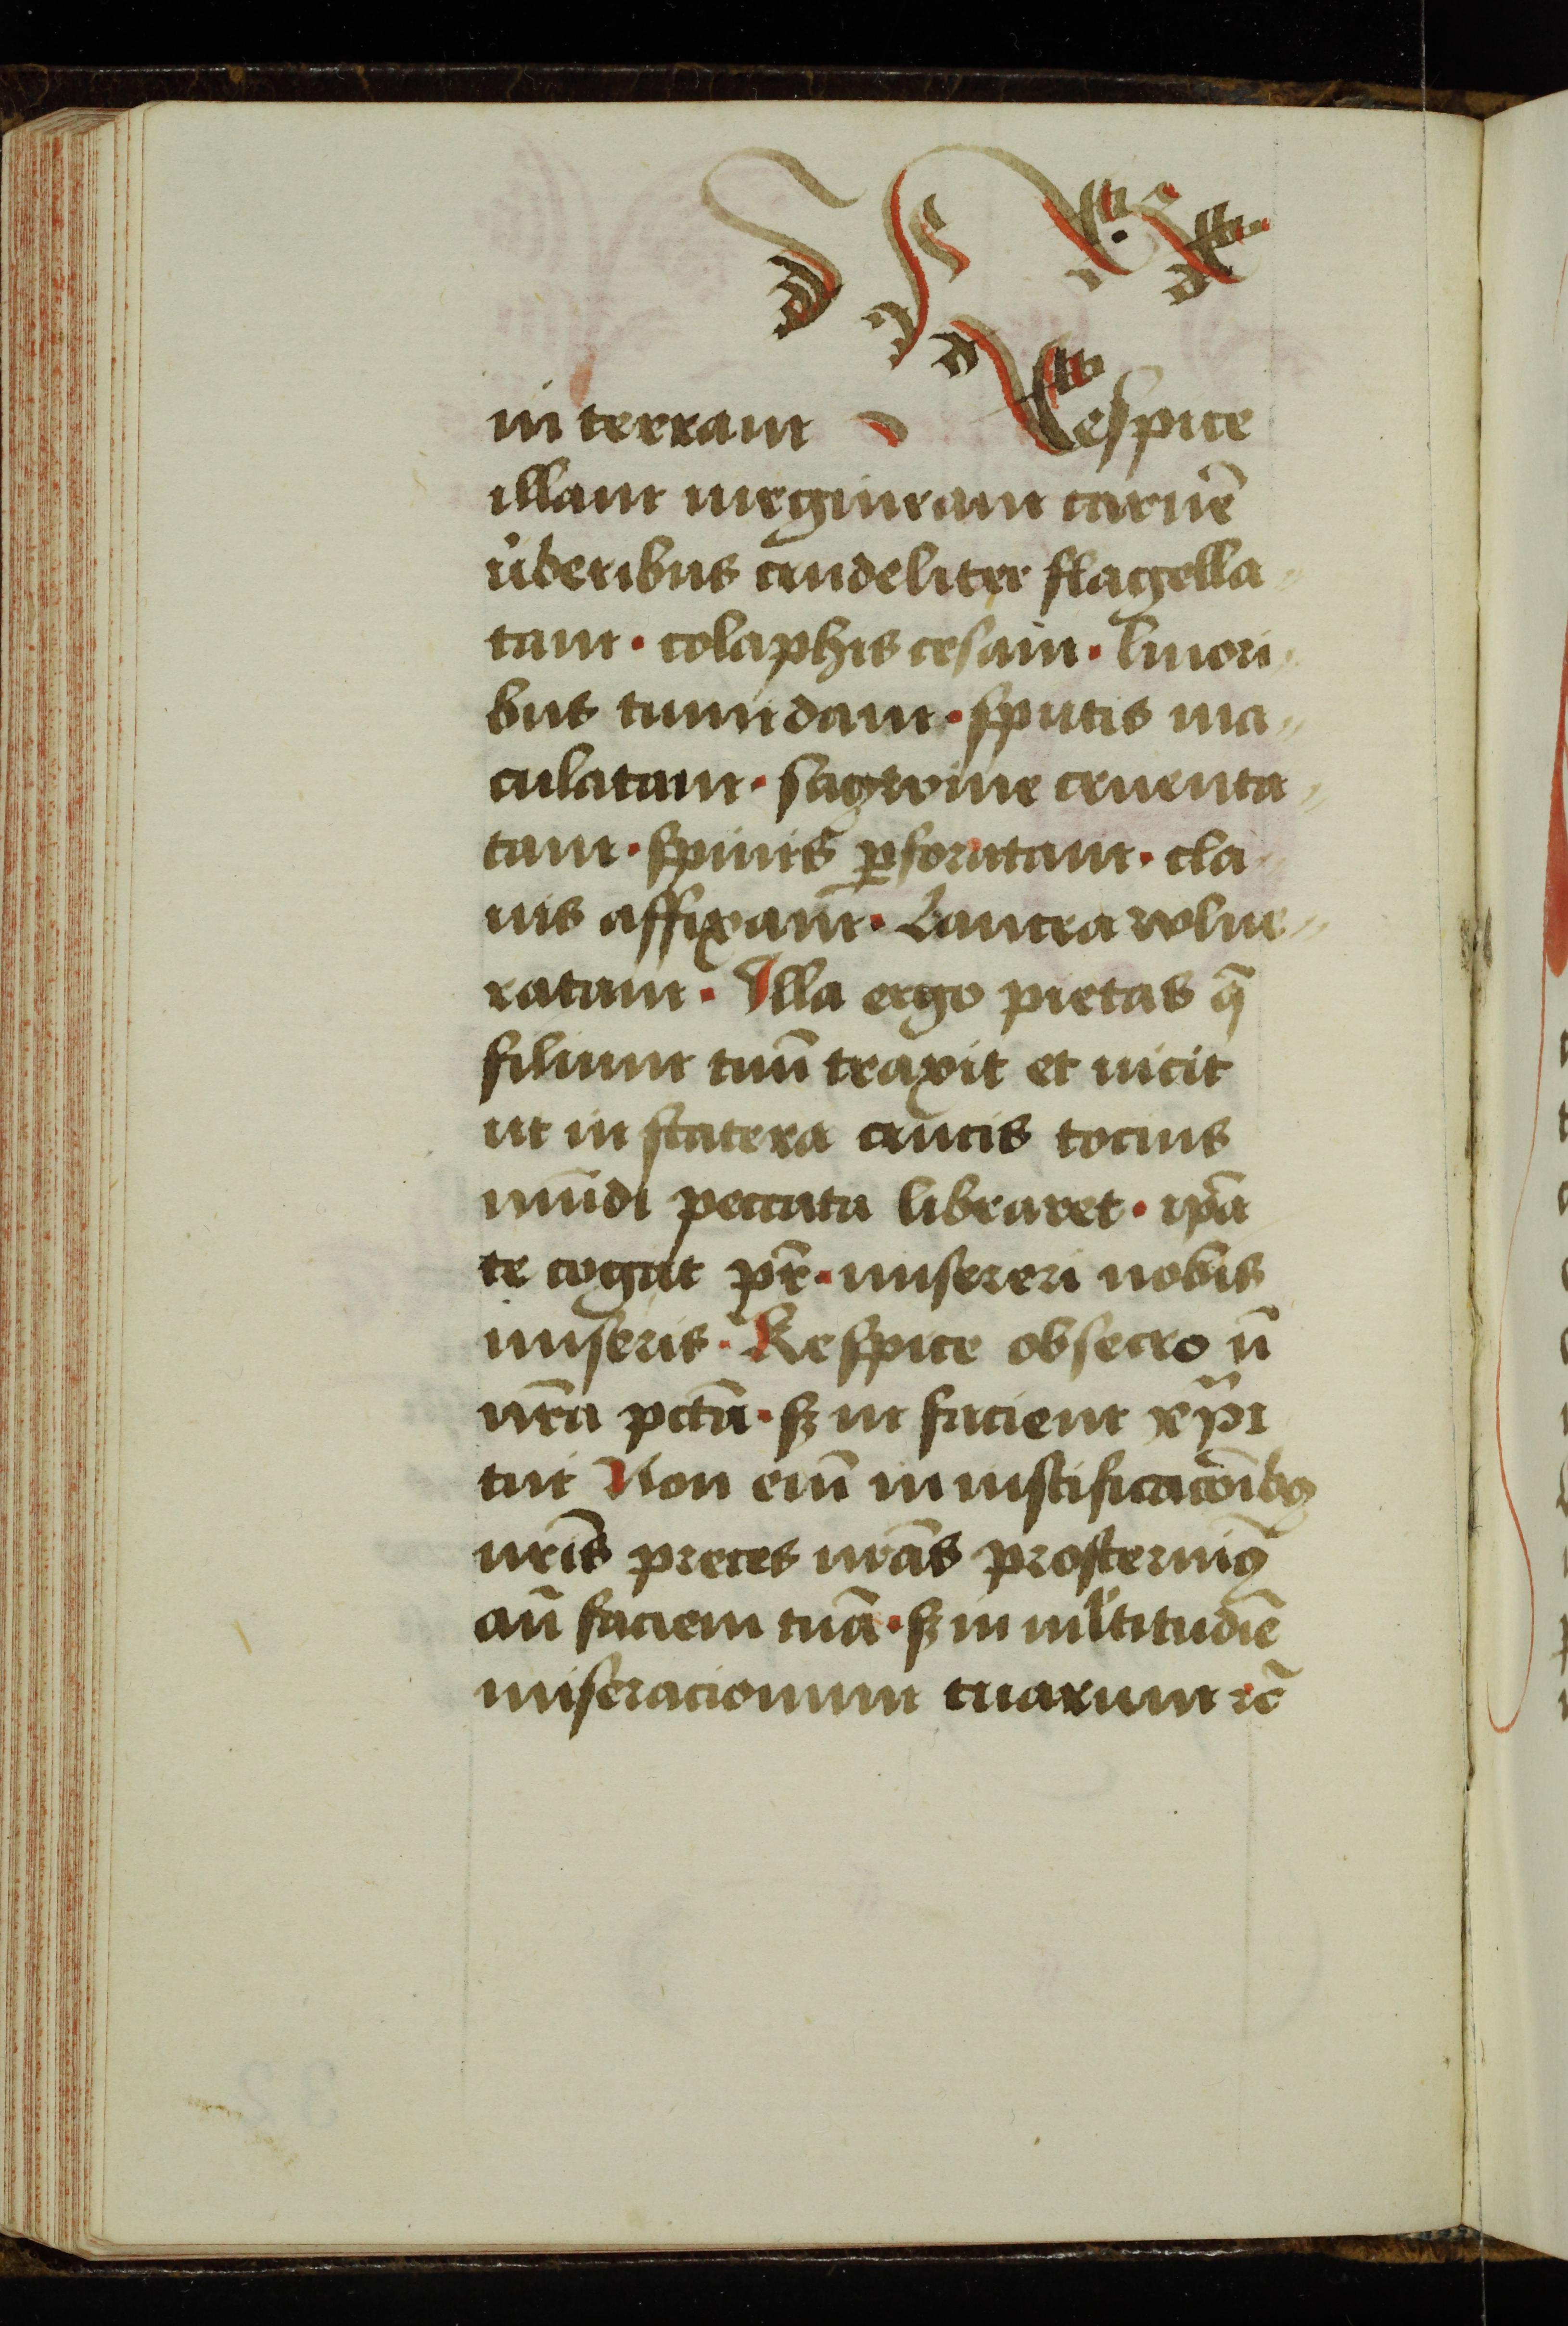 in terram Respice
illam uirgineam carnē
u̇beribus crudeliter flagella
tam · colaphis cesam · liuori
bus tumidam · sputis ma〃
culatam · sagwine cruenta〃
tam · spinis ꝑforatam · cla
uis affixam · Lancea wlne〃
ratam · Illa ergo pietas q̄
filium tuū traxit et uicit
ut in statera crucis tocius
mūdi peccata libraret · ip̄a
te cogat pr̄ · misereri nobis
miseris · Respice obsecro n̄
nr̄a pctā · sꝫ in faciem xp̄i
tui Non eīm in iustificacōībꝫ
nr̄is preces nr̄as prosternimꝰ
an̄ faciem tuā · sꝫ in ml̓titudīe
miseracionum tuarum ⁊c̄